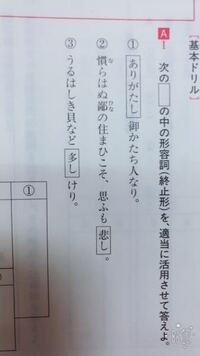 [基本ドリル]
A 1 次の□の中の形容詞(終止形)を、適当に活用させて答えよ。
① ありがたし 御かたち人なり。
② 慣らはぬ鄙の住まひこそ、思ふも 悲し 。
な ひな
③ うるはしき貝など 多し けり。
①